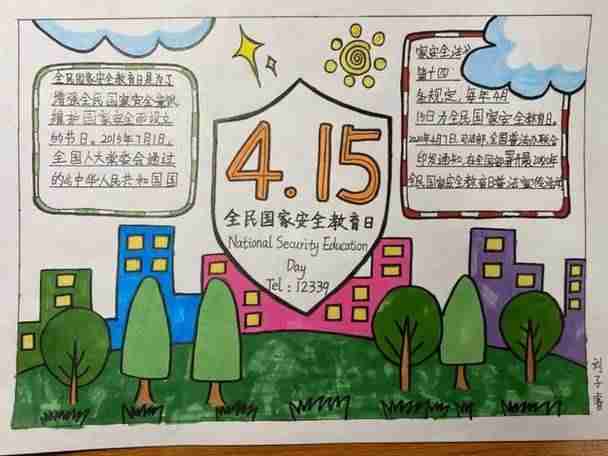 全民国家安全教育日是为了
增强全民国家安全意识
维护国家安全而设立
的节日。2015年7月1日,
全国人大常委会通过
的《中华人民共和国国
4.15
全民国家安全教育日
National Security Education
Day
Tel:12339
家安全法》
第十四
条规定,每年4月
15日为全民国家安全教育日。
2020年4月7日,司法部,全国普法办联合
印发通知,在全国部署开展2020年
全民国家安全教育日普法宣传活动